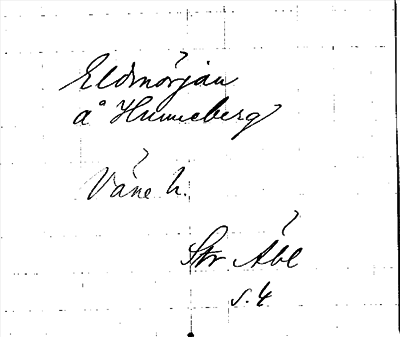 Eldmörjan
å Hunneberg
Väne h.
Skr Åbl
s. 4